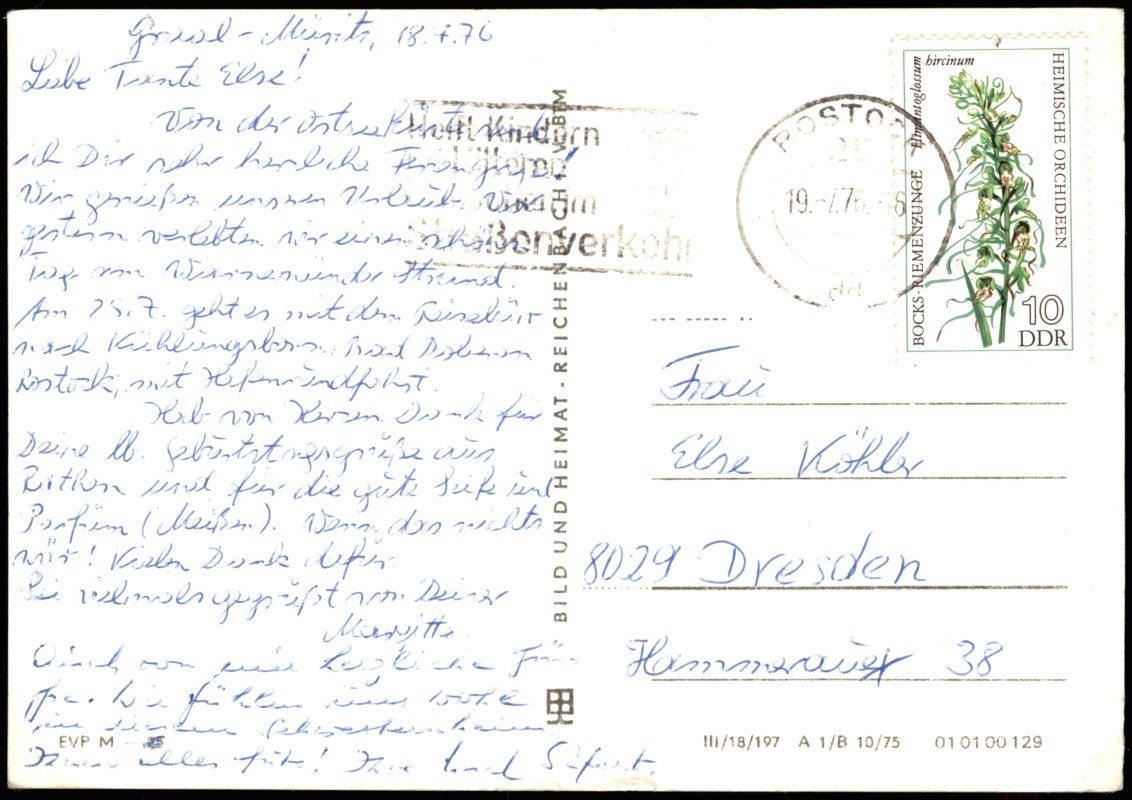 Graal-Müritz, 18.7.76
Liebe Tante Else!
Von der Ostseeküste
ich Dir sehr herzliche Feriengrüße!
Wir genießen unseren Urlaub.
gestern verlebten wir einen schönen
Tag am Warnemünder Strand.
Am 25.7. geht es mit dem Reisebüro
nach Kühlungsborn, Bad Doberan
Rostock, mit Hafenrundfahrt.
Hab von Herzen Dank für
Deine lb. Geburtstagsgrüße aus
und für die gute Seife und
Parfüm (Meißen). Wenn das nichts
wär! Vielen Dank dafür
Sei vielmals gegrüßt von Deiner
Auch von mir herzliche
Wir fühlen uns wohl
in diesem
alles Gute!
EVP M
BILD UND HEIMAT · REICHENBACH I. V. BPM
Helft Kindern
Älteren
im
Straßenverkehr
ROSTOCK
25
19.-7.76.-16
dd
HEIMISCHE ORCHIDEEN
BOCKS-RIEMENZUNGE Himantoglossum hircinum
10
DDR
Frau
Else Köhler
8029 Dresden
Hammeraue 38
III/18/197 A 1/B 10/75 01 01 00 129